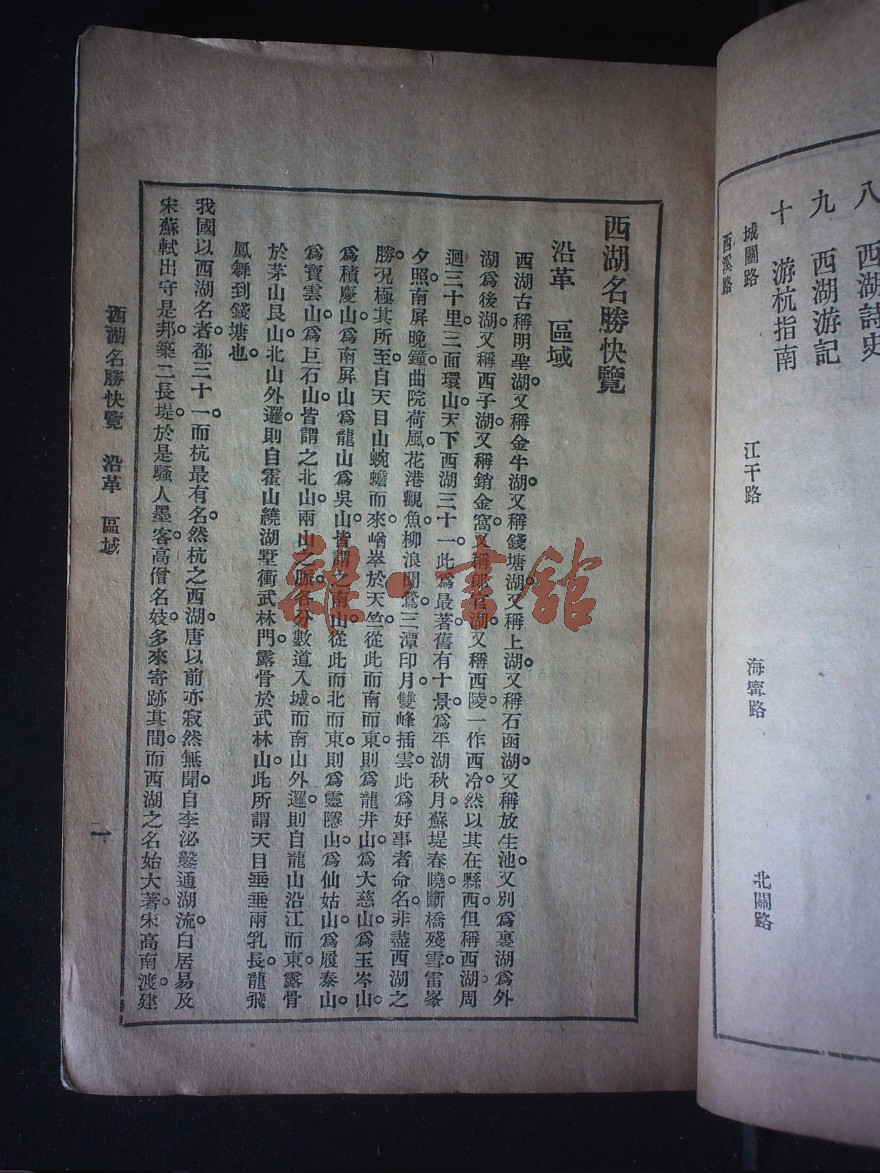 八 西湖詩史
九 西湖游記
十 游杭指南
城闉路 江干路 海寧路 北關路
西溪路
西湖名勝快覽
沿革 區域
西湖古稱明聖湖。又稱金牛湖。又稱錢塘湖。又稱上湖。又稱石函湖。又稱放生池。又別爲裏湖爲外
湖爲後湖。又稱西子湖。又稱銷金窩。又稱 湖。又稱西陵一作西冷。然以其在縣西。但稱西湖。周
迴三十里。三面環山。天下西湖三十一。此爲最著。舊有十景。爲平湖秋月。蘇堤春曉。斷橋殘雪。雷峯
夕照。南屏晚鐘。曲院荷風。花港觀魚。柳浪聞鶯。三潭印月。雙峰插雲。此爲好事者命名。非盡西湖之
勝。況極其所至。自天目山蜿蟾而來。崷崒於天竺。從此而南而東。則爲龍井山。爲大慈山。爲玉岑山。
爲積慶山。爲南屏山。爲龍山。爲吳山。皆謂之南山。從此而北而東。則爲靈隱山。爲仙姑山。爲履泰山。
爲寶雲山。爲巨石山。皆謂之北山。兩山之脈。各分數道入城。而南山外邏。則自龍山沿江而東。露骨
於茅山艮山。北山外邏。則自霍山繞湖墅。衝武林門。露骨於武林山。此所謂天目垂垂兩乳長。龍飛
鳳舞到錢塘也。
我國以西湖名者。都三十一。而杭最有名。然杭之西湖。唐以前亦寂然無聞。自李泌鑿通湖流。白居易及
宋蘇軾出守是邦。築二長堤。於是騷人墨客。高僧名妓。多來寄跡其間。而西湖之名始大著。宋高南渡。建
西湖名勝快覽 沿革 區域
一
雜·書館